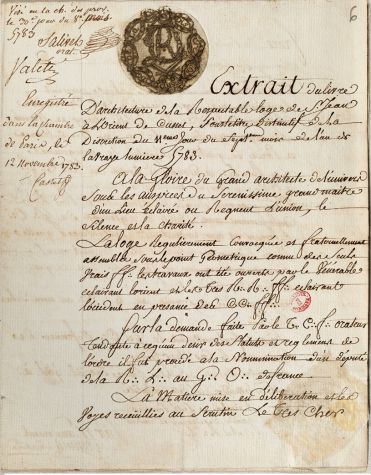 6
Visé en la ch. des prov.
le 20e jour du 8e mois
5783
Salivet
orat.
Valeté
Enregistré
dans la chambre
de Paris, le
12 Novembre 1783.
Extrait du livre
D'architecture de la Respectable loge de St Jean
à L'orient de Cusset, sous le titre distinctif de la
Discretion du 11eme jour du Septe mois de L'an de
la vraye lumiere 5783.
A la Gloire du Grand architecte de L'univers
Sous les auspices du Serenissime grand maitre
d'un Lieu Eclairé ou Regnent L'union, le
Silence et la Charité.
La loge Regulierement Convoquée et fraternellement
assemblée Sous le point Geometrique connu des Seuls
vrais ff∴ Les travaux ont été ouverts par le Venerable
eclairant l'orient et les
eclairant
L'occident en presence des CC∴ ff∴
Sur la demande faite par le T∴ C∴ f∴ orateur
tendante à ce qu'en
des Statuts et reglements de
l'ordre il fut procédé à la Nomination d'un deputé
de la R∴ L∴ au G∴ O∴ de france
La Matiere mise en deliberation et les
Voyes recueillies au Scrutin Le tres Cher